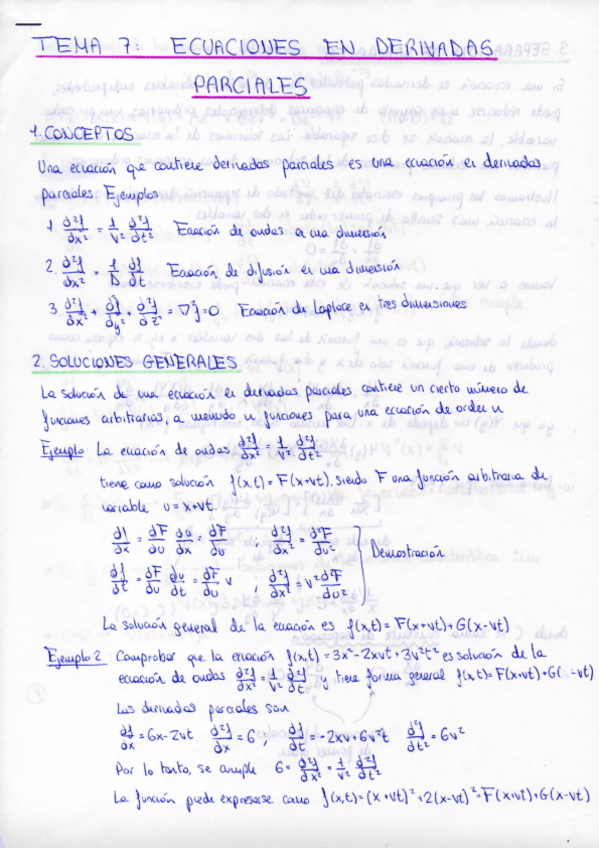 TEMA 7: ECUACIONES EN DERIVADAS
PARCIALES
1. CONCEPTOS
Una ecuación que contiene derivadas parciales es una ecuación en derivadas
parciales. Ejemplos
1. ∂²f/∂x² = 1/V² ∂²f/∂t² Ecuación de ondas en una dimensión
2. ∂²f/∂x² = 1/D ∂f/∂t Ecuación de difusión en una dimensión
3. ∂²f/∂x² + ∂²f/∂y² + ∂²f/∂z² = ∇²f = 0 Ecuación de Laplace en tres dimensiones
2. SOLUCIONES GENERALES
La solución de una ecuación en derivadas parciales contiene un cierto número de
funciones arbitrarias, a menudo n funciones para una ecuación de orden n
Ejemplo La ecuación de ondas ∂²f/∂x² = 1/V² ∂²f/∂t²
tiene como solución f(x,t) = F(x+vt), siendo F una función arbitraria de
variable u = x+vt.
∂f/∂x = ∂F/∂u ∂u/∂x = ∂F/∂u ; ∂²f/∂x² = ∂²F/∂u²
∂f/∂t = ∂F/∂u ∂u/∂t = ∂F/∂u v ; ∂²f/∂t² = v² ∂²F/∂u²
Demostración
La solución general de la ecuación es f(x,t) = F(x+vt)+G(x-vt)
Ejemplo 2 Comprobar que la ecuación f(x,t) = 3x²-2xvt+3v²t² es solución de la
ecuación de ondas ∂²f/∂x² = 1/V² ∂²f/∂t y tiene forma general f(x,t)=F(x+vt)+G( -vt)
Las derivadas parciales son
∂f/∂x = 6x-2vt ∂²f/∂x = 6 ; ∂f/∂t = -2xv+6v²t ∂²f/∂t² = 6v²
Por lo tanto, se cumple 6 = ∂²f/∂x² = 1/V² ∂²f/∂t²
La función puede expresarse como f(x,t)=(x+vt)²+2(x-vt)²=F(x+vt)+G(x-vt)